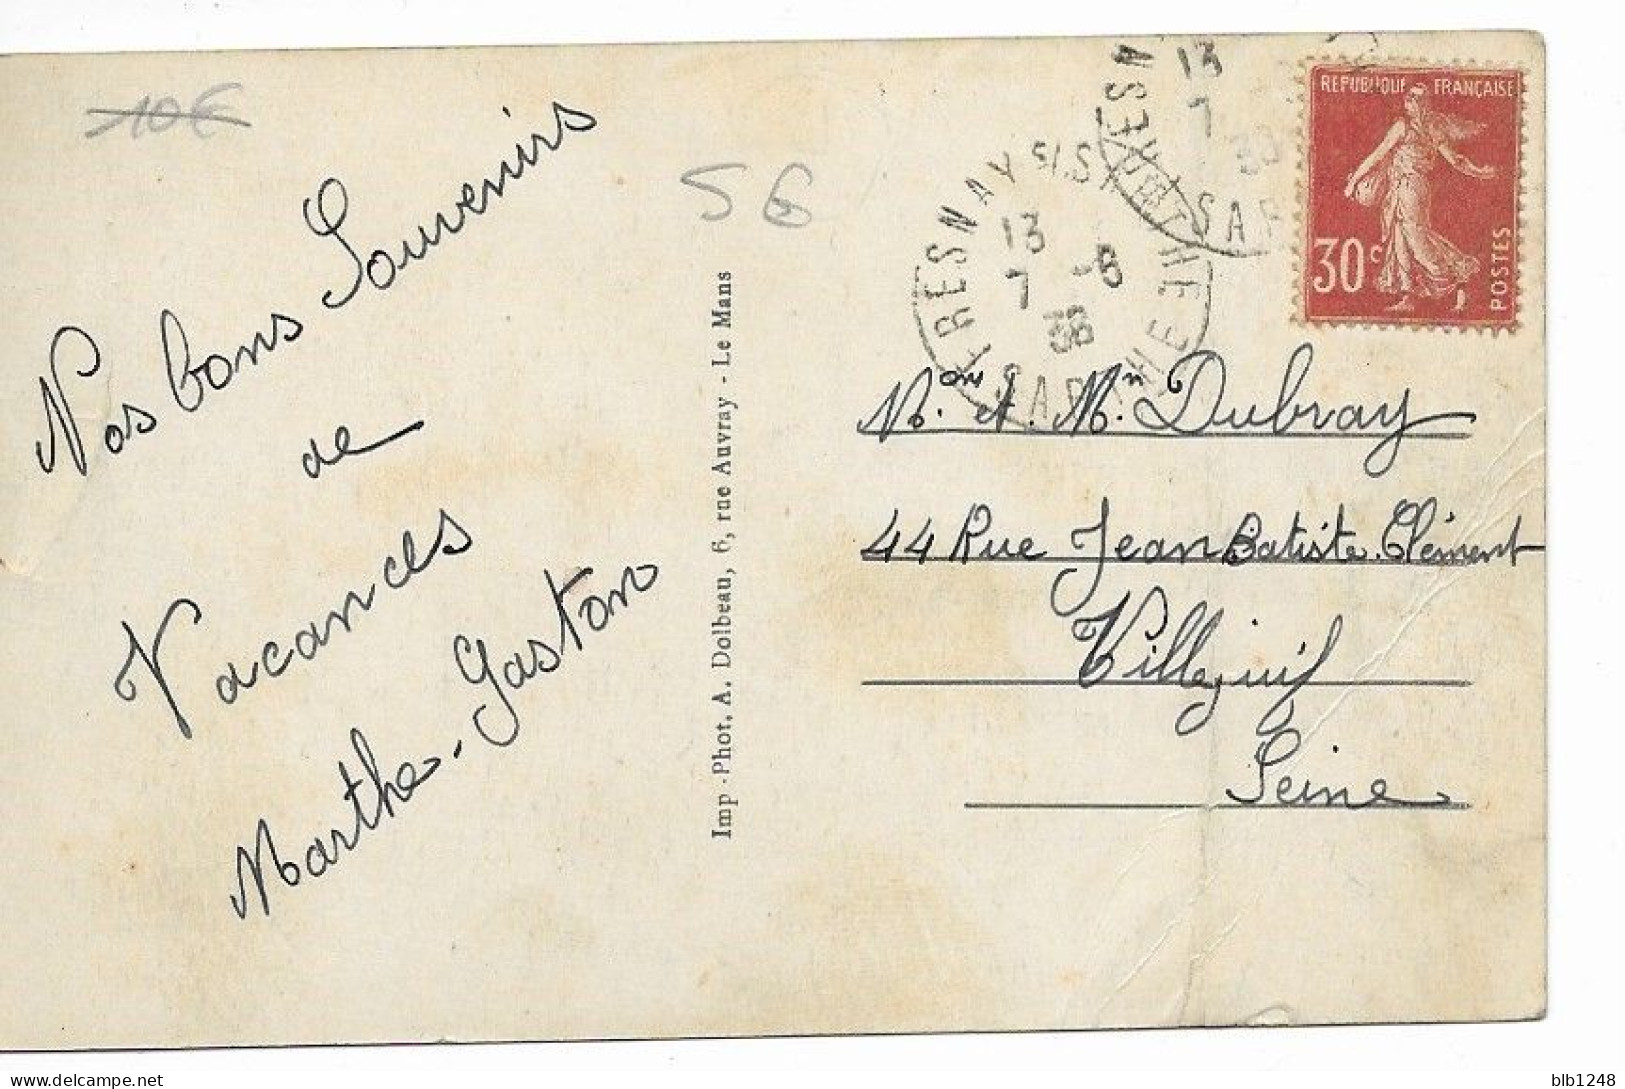 10€
Nos bons Souvenirs
de
Vacances
Marthe - Gaston
5€
Imp - Phot. A. Dolbeau, 6, rue Auvray - Le Mans
FRESNAY S/ SARTHE
13
7 -8
38
FRESN
13
7
38
SAR
REPUBLIQUE FRANÇAISE
30c
POSTES
Mr et Mme Dubray
44 Rue Jean Batiste Clément
Villejuif
Seine
blb1248